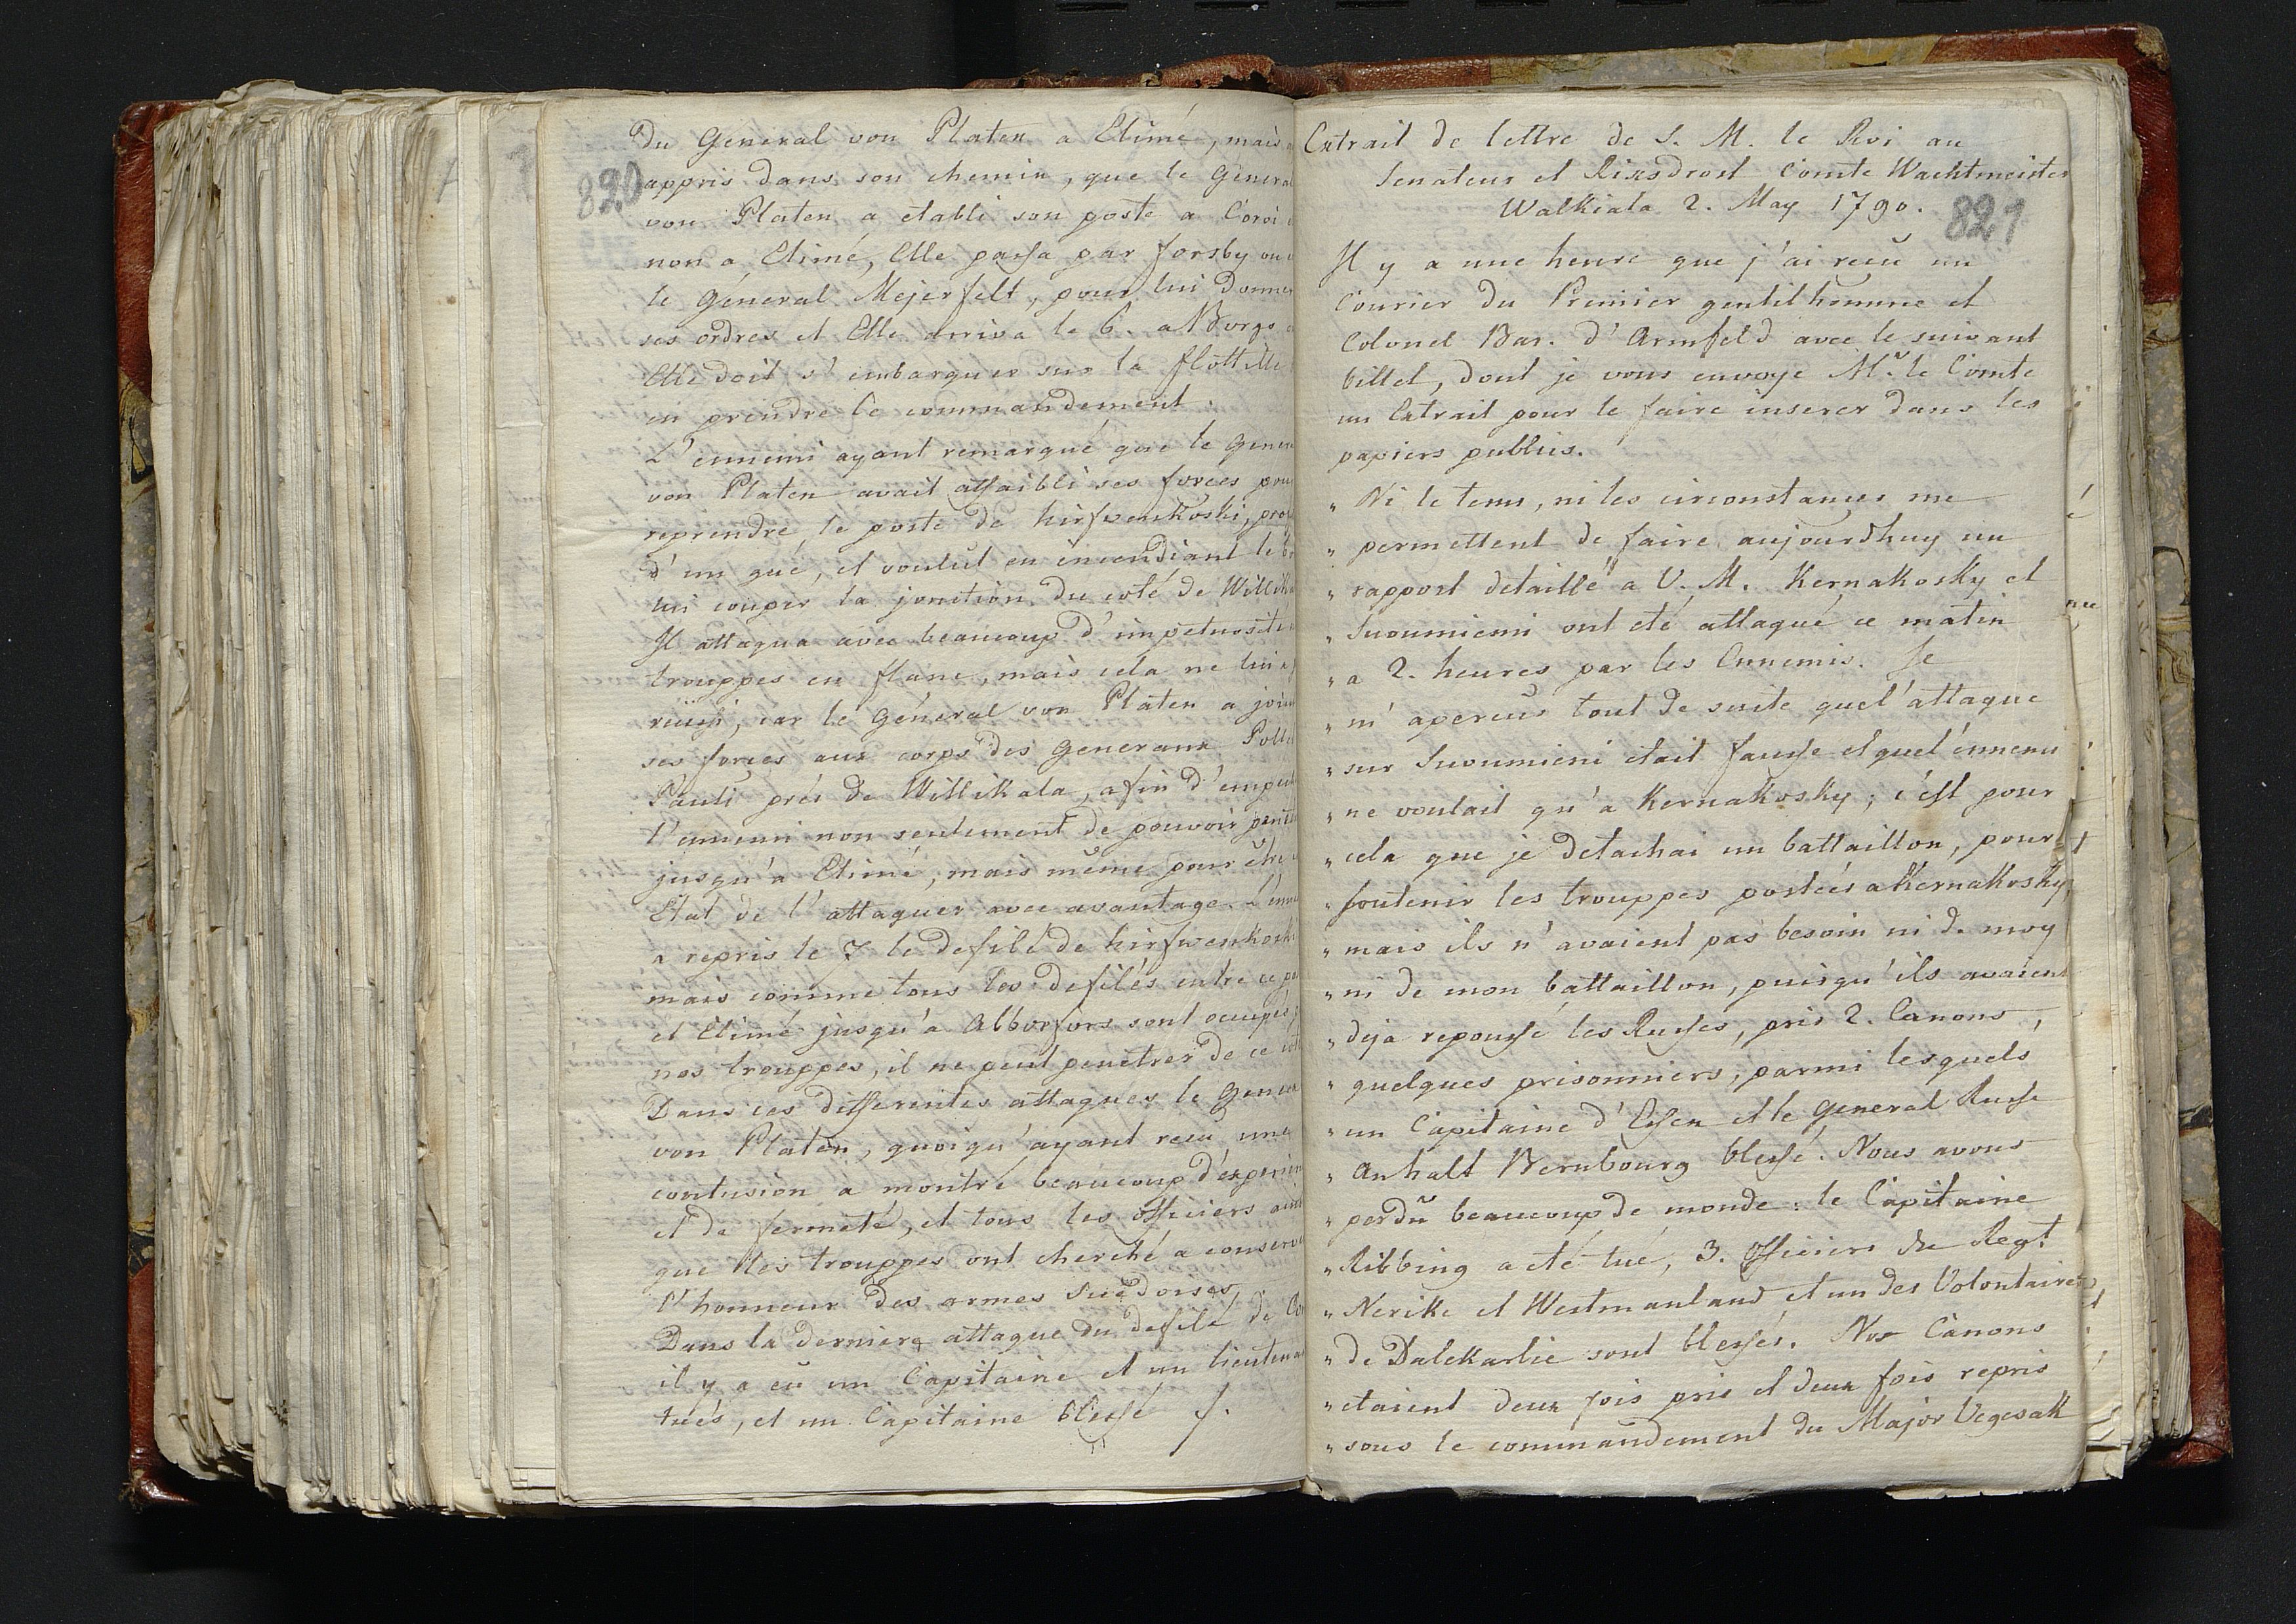 820
du General von Platen a Elimé, mais
appris dans son chemin, que le General
von Platen a etabli son poste a Coroi
non a Elimé, Elle passa par forsby ou
le General Mejerfelt, pour lui donner
ses ordres et Elle arriva le 6. a Borgo
Elle doit s'embarquer sur la flottille
en prendre le commandement.
L'ennemi ayant remarqué que le Gener
von Platen avait affaibli ses forces pour
reprendre le poste de hirfwenkoski, prof
d'un gué, et voulut en incendiant le
lui couper la jonction du coté de Willik
Il attaqua avec beaucoup d'impetuosité
trouppes en flanc, mais cela ne lui
reussi, car le General von Platen a join
ses forces aux corps des Generaux Poll
Pauli près de Willikala, afin d'empech
l'ennemi non seulement de pouvoir penet
jusqu'à Elimé, mais même pour être
Etat de l'attaquer avec avantage. L'enne
a repris le 7 le defilé de hirfwenkoski
mais comme tous les defilés entre ce po
et Elimé jusqu'a Abborfors sont occupés
nos trouppes, il ne peut penetrer de ce coté
Dans ces differentes attaques le Gener
von Platen, quoiqu'ayant recu une
contusion a montré beaucoup d'experien
et de fermeté, et tous les officiers ains
que les trouppes ont cherché a conserver
l'honneur des armes Suedoises,
Dans la derniere attaque du defilé de
il y a eu un Capitaine et un lieutenan
tués, et un Capitaine blessé
Extrait de lettre de S. M. le Roi au
Senateur et Rixsdrost Comte Wachtmeister
Walkiala 2. May 1790.
821
Il y a une heure que j'ai recü un
Courier du Premier gentilhomme et
Colonel Bar. d'Armfeld avec le suivant
billet, dont je vous envoye Mr. le Comte
un Extrait pour le faire inserer dans les
papiers publics.
" Ni le tems, ni les circonstances me
" permettent de faire aujourdhuy un
" rapport detaillé a V. M. Kernakosky et
" Suoumiemi ont eté attaqué ce matin
" a 2. heures par les Ennemis. Je
" m'apercus tout de suite quel'attaque
" sur Suoumieni etait fausse et quel'ennemi
" ne voulait qu'a Kernakosky; c'est pour
" cela que je detachai un battaillon, pour
" soutenir les trouppes postées a Kernakosky
" mais ils n'avaient pas besoin ni de moy
" ni de mon battaillon, puisqu'ils avaient
" deja repoussé les Russes, pris 2. Canons,
" quelques prisonniers, parmi lesquels
" un Capitaine d'Essen et le General Russe
" Anhalt Bernbourg blessé. Nous avons
" perdü beaucoup de monde: le Capitaine
" Ribbing a eté tué, 3. Officiers du Regt.
" Nerike et Westmanland et un des Volontaires
" de Dalekarlie sont blessés. Nos Canons
" etaient deux fois pris et deux fois repris
" sous le commandement du Major Vegesak